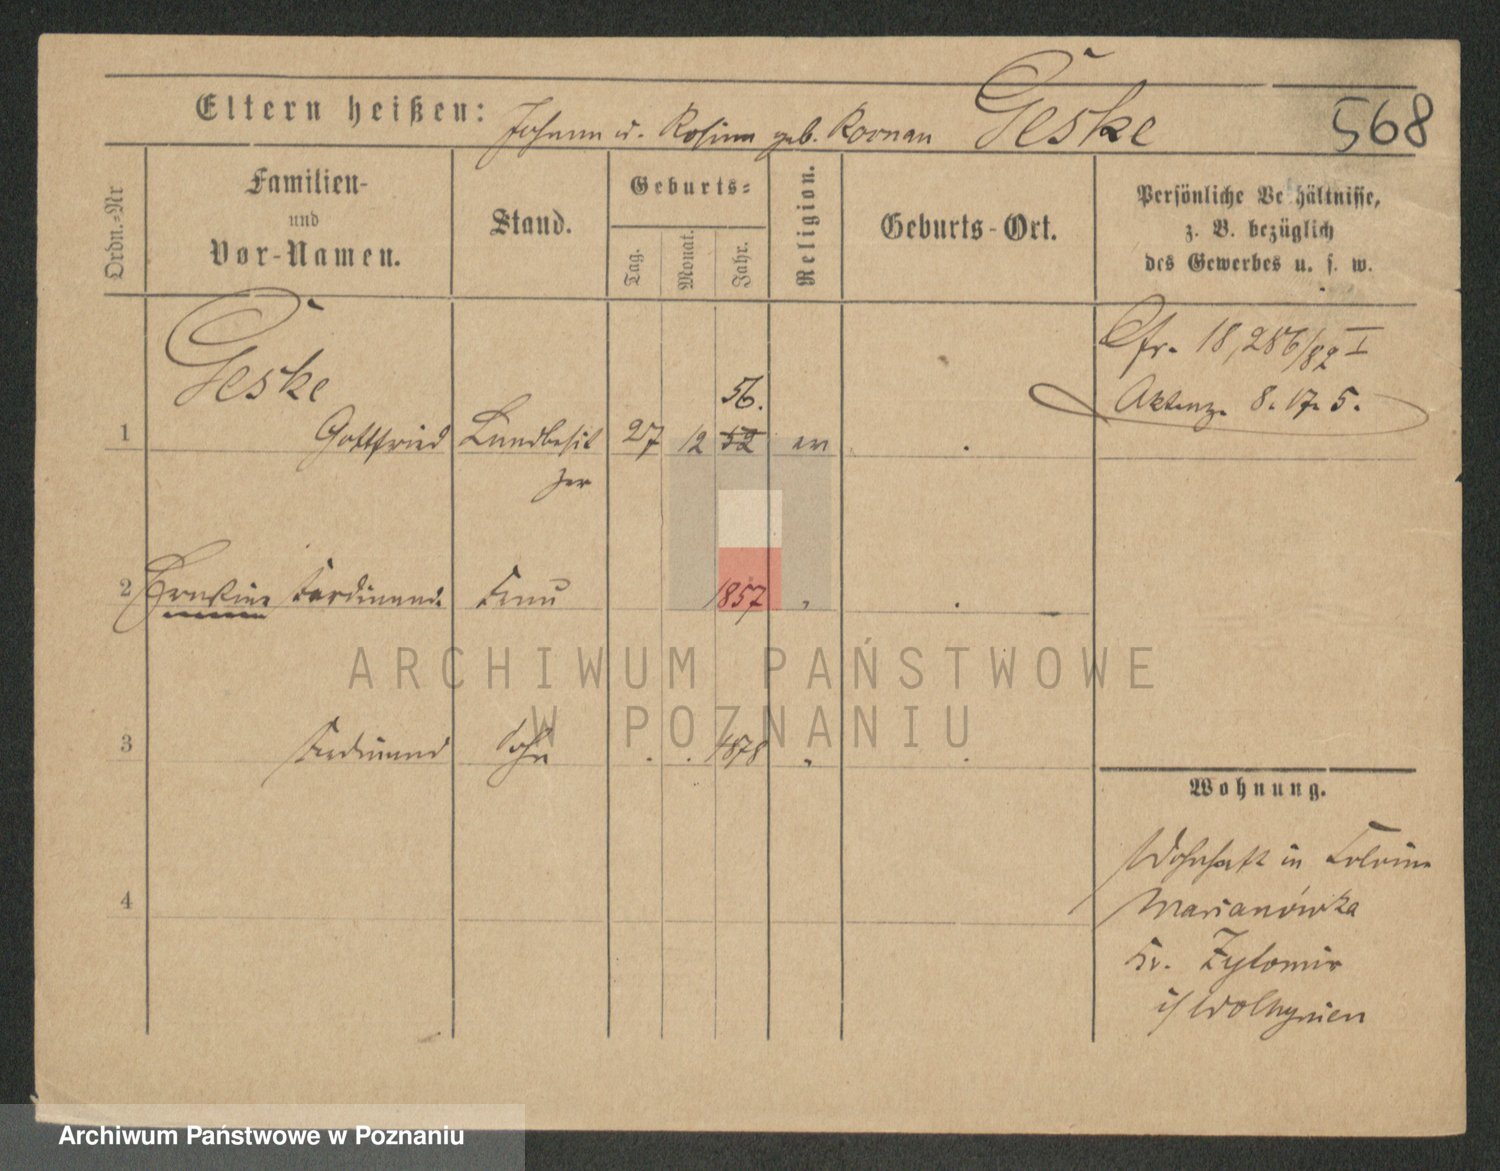 Eltern heißen: Johann u. Rosina geb. Kornau Geske 568
Ordn.-Nr
Familien-
und
Vor-Namen.
Stand.
Geburts-
Tag.
Monat.
Jahr.
Religion.
Geburts-Ort.
Persönliche Verhältnisse,
z. B. bezüglich
des Gewerbes u. s. w.
Geske
Cfr. 18,286/82 I
Aktenz. 8. 17. 5.
56.
1 Gottfried Landbesit 27 12 52 ev
zer
2 Ernestine Ferdinand. Frau 1857 "
ARCHIWUM PAŃSTWOWE
W POZNANIU
3 Ferdinand Sohn . . 1878 "
Wohnung.
Wohnhaft in Colonie
Marianówka
Kr. Zytomir
i/ Wolhynien
4
Archiwum Państwowe w Poznaniu